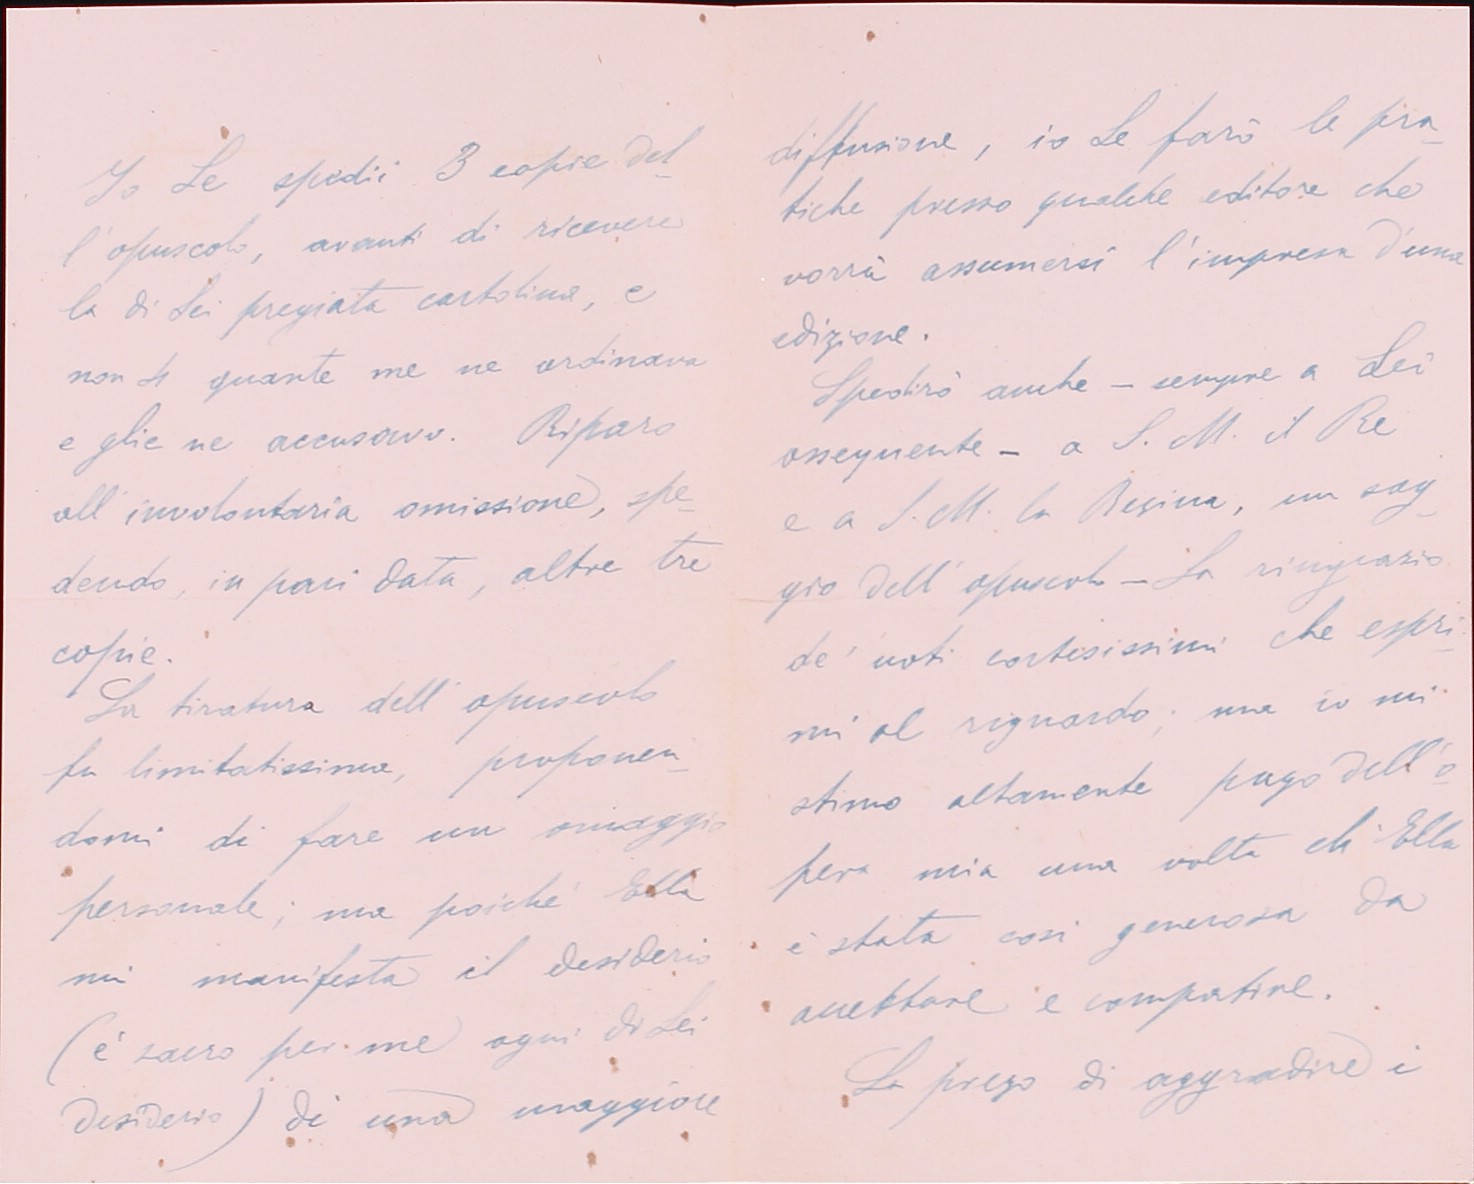 Io Le spedii 3 copie del-
l'opuscolo, avanti di ricevere
la di Lei pregiata cartolina, e
non 4 quante me ne ordinava
e glie ne accusavo. Riparo
all'involontaria omissione, spe-
dendo, in pari data, altre tre
copie.
La tiratura dell'opuscolo
fu limitatissima, proponen-
domi di fare un omaggio
personale; ma poiché Ella
mi manifesta il desiderio
(è sacro per me ogni di Lei
desiderio) di una maggiore
diffusione, io Le farò le pra-
tiche presso qualche editore che
vorrà assumersi l'impresa d'una
edizione.
Spedirò anche – sempre a Lei
ossequente – a S. M. il Re
e a S. M. la Regina, un sag-
gio dell'opuscolo – La ringrazio
de' voti cortesissimi che espri-
mi al riguardo; ma io mi
stimo altamente pago dell'o-
pera mia una volta ch'Ella
è stata così generosa da
accettare e compatire.
La prego di aggradire i